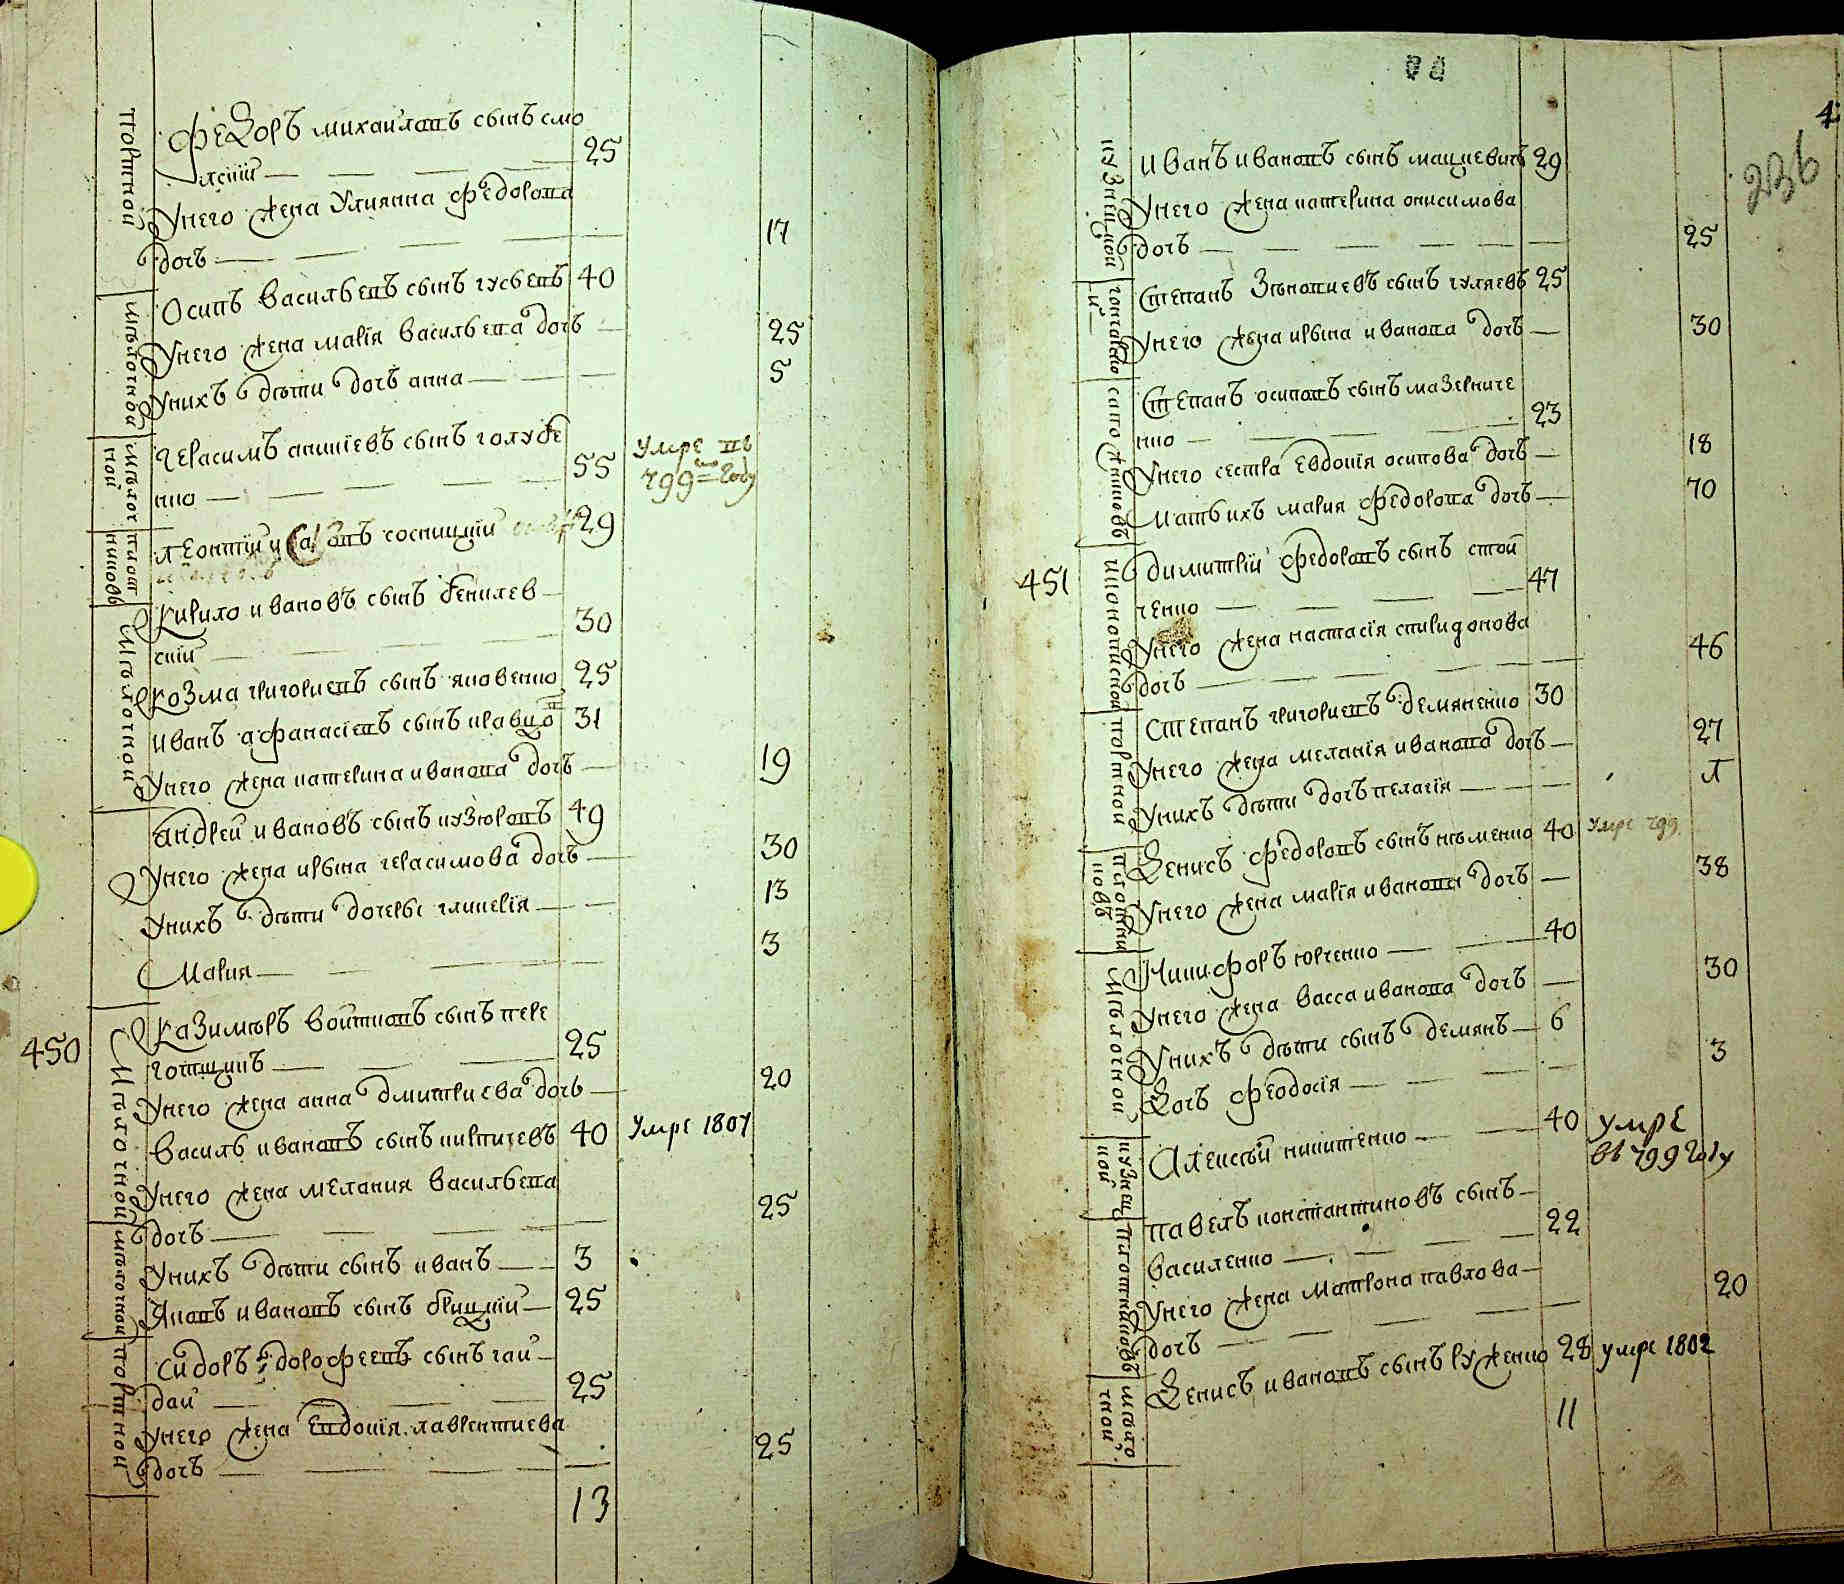 портной
Федоръ михаиловъ сынъ смо
лскій 25
Унего жена Улиянна федорова
дочь 17
мѣлочной
Осипъ васильевъ сынъ гусьевъ 40
Унего жена марія васильева дочь 25
Унихъ дѣти дочь анна 5
мѣлочной
Герасимъ аникіевъ сынъ голубе
нко 55 умре въ 799мъ году
плотниковъ
леонтіи сосницкіи 29
мѣлочной
Кирило ивановъ сынъ бенилев
скіи 30
Козма григориевъ сынъ яковенко 25
иванъ афанасіевъ сынъ кравцовъ 31
Унего жена катерина иванова дочь 19
андреи ивановъ сынъ кузюровъ 49
Унего жена ирына герасимова дочь 30
Унихъ дѣти дочеры гликерія 13
Мария 3
450
Мѣлочной
Казимѣръ воитковъ сынъ пере
готщикъ 25
Унего жена анна дмитриева дочь 20
василь ивановъ сынъ кирпичевъ 40 умре 1801
Унего жена мелания васильева
дочь 25
Унихъ дѣти сынъ иванъ 3
мѣлочной
Яковъ ивановъ сынъ брицкіи 25
портной
Сидоръ дорофеевъ сынъ гаи
даи 25
Унего жена Евдокія лаврентиева
дочь 25
13
4
236
кузнецкой
иванъ ивановъ сынъ мацкевичъ 29
Унего жена катерина онисимова
дочь 25
гончарской
Степанъ Зѣновиевъ сынъ гуляевъ 25
Унего жена ирына иванова дочь 30
сапожниковъ
Степанъ осиповъ сынъ мазерниче
нко 23
Унего сестра евдокія осипова дочь 18
Мать ихъ мария федорова дочь 70
451
иконописной
димитріи федоровъ сынъ стои
ченко 47
Унего жена настасія спиридонова
дочь 46
портной
Степанъ григориевъ демяненко 30
Унего жена меланія иванова дочь 27
Унихъ дѣти дочь пелагія
плотниковъ
Денисъ федоровъ сынъ нѣменко 40 умре 799
Унего жена марія иванова дочь 38
Мѣлочной
Никифоръ юрченко 40
Унего жена васса иванова дочь 30
Унихъ дѣти сынъ демянъ 6
Дочь феодосія 3
кузнецкой
Алексѣй никитенко 40 умре
въ 799 году
плотниковъ
павелъ константиновъ сынъ
василенко 22
Унего жена матрона павлова
дочь 20
мѣлочной
Денисъ ивановъ сынъ руженко 28 умре 1802
11